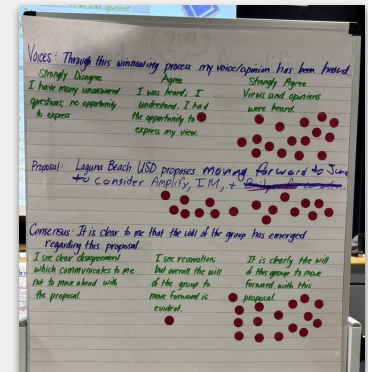 Voices: Through this winnowing process my voice/opinion has been heard.
Strongly Disagree
I have many unanswered
questions, no opportunity
to express
Agree
I was heard; I
understand. I had
the opportunity to
express my view.
Strongly Agree
Views and opinions
were heard.
Proposal: Laguna Beach USD proposes moving forward to June
to consider Amplify, IM, +
Consensus: It is clear to me that the will of the group has emerged
regarding this proposal.
I see clear disagreement
which communicates to me
not to move ahead with
the proposal.
I see reservations,
but overall the will
of the group to
move forward is
evident.
It is clearly the will
of this group to move
forward with this
proposal.